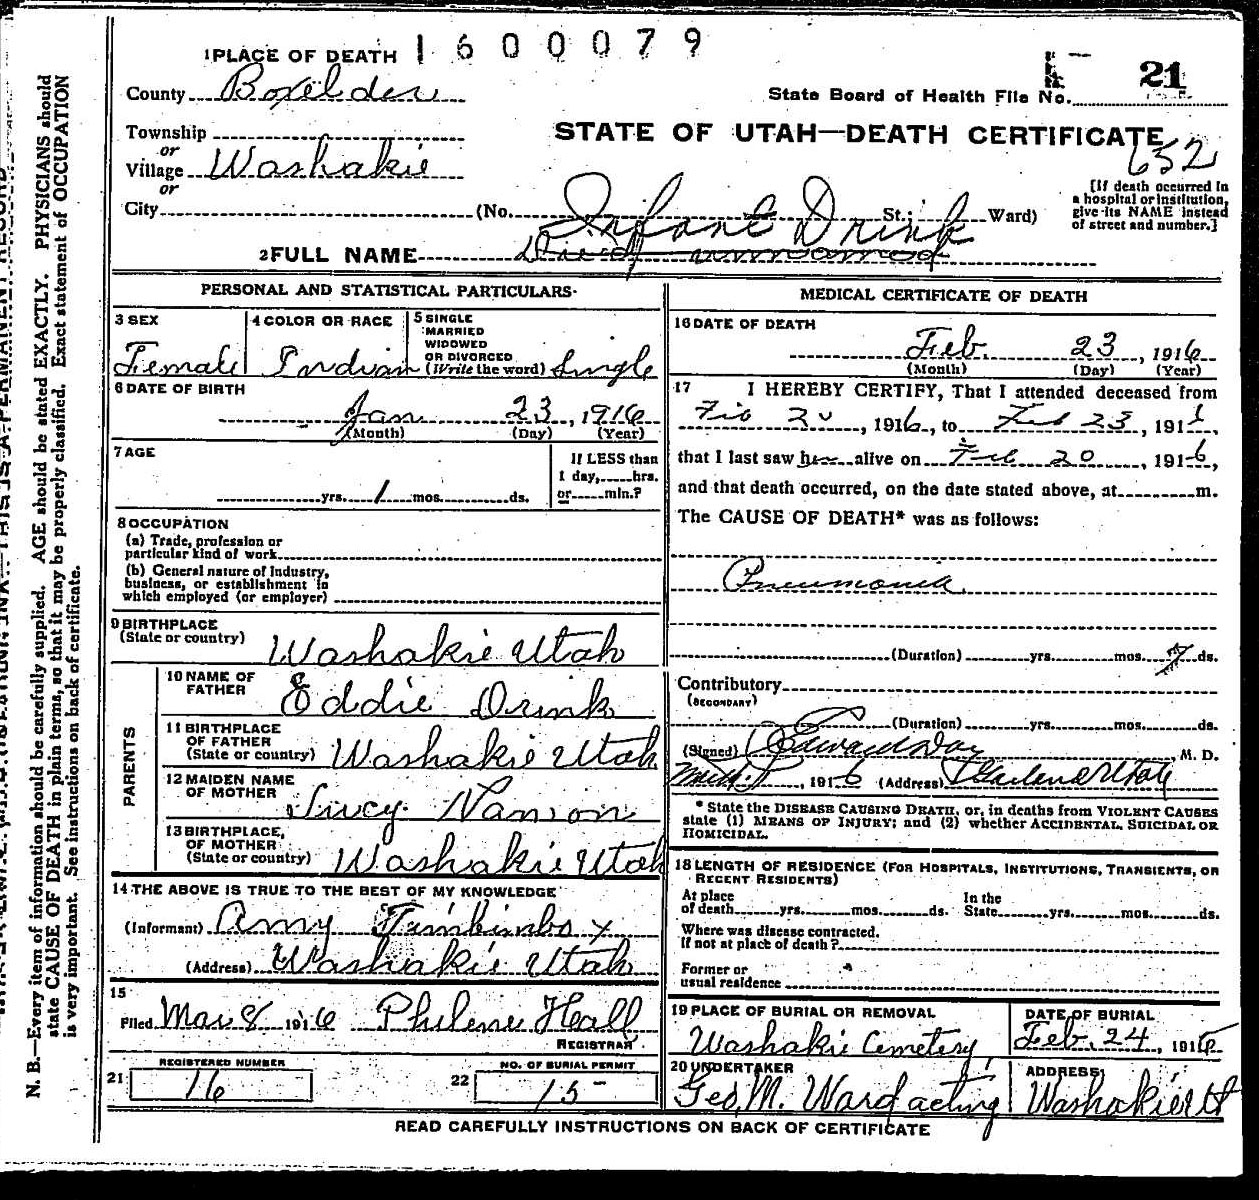 1 PLACE OF DEATH 1600079
County Boxelder
State Board of Health File No. 21
Township
or
Village Washakie
or
City (No. St.; Ward)
STATE OF UTAH—DEATH CERTIFICATE
652
[If death occurred in
a hospital or institution,
give its NAME instead
of street and number.]
Infant Drink
2 FULL NAME Died unnamed
PERSONAL AND STATISTICAL PARTICULARS
3 SEX
Female
4 COLOR OR RACE
Indian
5 SINGLE
MARRIED
WIDOWED
OR DIVORCED
(Write the word) Single
6 DATE OF BIRTH
Jan 23, 1916
(Month) (Day) (Year)
7 AGE
yrs. 1 mos. ds.
If LESS than
1 day, hrs.
or min.?
8 OCCUPATION
(a) Trade, profession or
particular kind of work
(b) General nature of industry,
business, or establishment in
which employed (or employer)
9 BIRTHPLACE
(State or country) Washakie Utah
PARENTS
10 NAME OF
FATHER Eddie Drink
11 BIRTHPLACE
OF FATHER
(State or country) Washakie Utah
12 MAIDEN NAME
OF MOTHER Lucy Namon
13 BIRTHPLACE,
OF MOTHER
(State or country) Washakie Utah
14 THE ABOVE IS TRUE TO THE BEST OF MY KNOWLEDGE
(Informant) Amy Timbimbo x
(Address) Washakie Utah
15
Filed Mar 8 1916 Philene Hall
REGISTRAR
21 REGISTERED NUMBER
16
22 NO. OF BURIAL PERMIT
15
MEDICAL CERTIFICATE OF DEATH
16 DATE OF DEATH
Feb. 23, 1916
(Month) (Day) (Year)
17 I HEREBY CERTIFY, That I attended deceased from
Feb 20, 1916, to Feb 23, 1916,
that I last saw her alive on Feb 20, 1916,
and that death occurred, on the date stated above, at m.
The CAUSE OF DEATH* was as follows:
Pneumonia
(Duration) yrs. mos. 7 ds.
Contributory
(SECONDARY)
(Duration) yrs. mos. ds.
(Signed) Edward Day, M. D.
1916 (Address) Garland Utah
* State the DISEASE CAUSING DEATH, or, in deaths from VIOLENT CAUSES
state (1) MEANS OF INJURY; and (2) whether ACCIDENTAL, SUICIDAL OR
HOMICIDAL.
18 LENGTH OF RESIDENCE (FOR HOSPITALS, INSTITUTIONS, TRANSIENTS, OR
RECENT RESIDENTS)
At place
of death yrs. mos. ds.
In the
State yrs. mos. ds.
Where was disease contracted.
If not at place of death?
Former or
usual residence
19 PLACE OF BURIAL OR REMOVAL
Washakie Cemetery
DATE OF BURIAL
Feb. 24, 1916
20 UNDERTAKER
Geo. M. Ward acting
ADDRESS
Washakie Ut
READ CAREFULLY INSTRUCTIONS ON BACK OF CERTIFICATE
N. B.—Every item of information should be carefully supplied. AGE should be stated EXACTLY. PHYSICIANS should
state CAUSE OF DEATH in plain terms, so that it may be properly classified. Exact statement of OCCUPATION
is very important. See instructions on back of certificate.